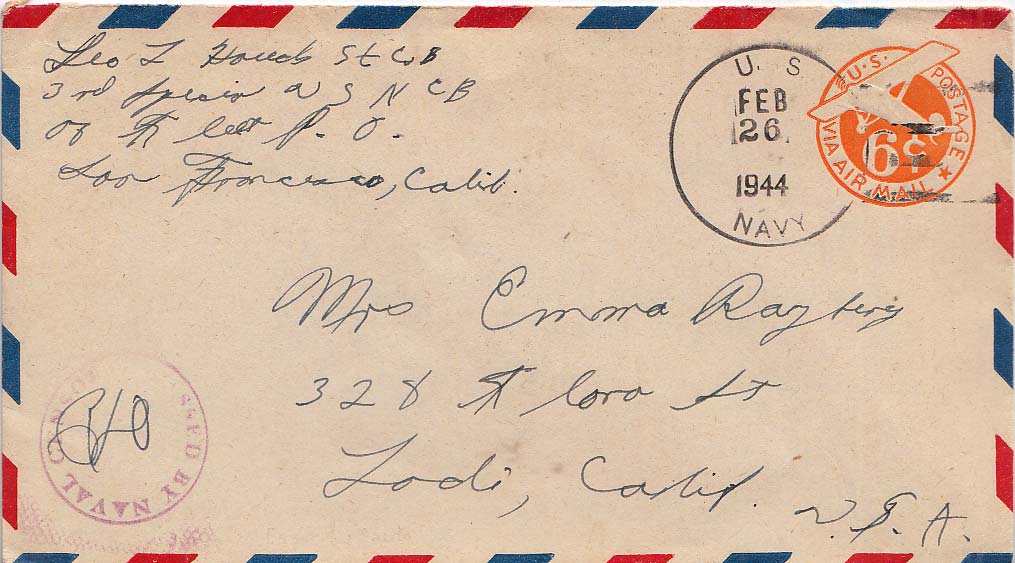 Leo L Houck St C B
3rd Special U S N C B
℅ Fleet P. O.
San Francisco, Calif.
U. S
FEB
26
1944
NAVY
U.S. POSTAGE
6¢
VIA AIR MAIL
Mrs Emma
328 Flora St
Lodi, Calif.
U.S.A.
PASSED BY NAVAL CENSOR